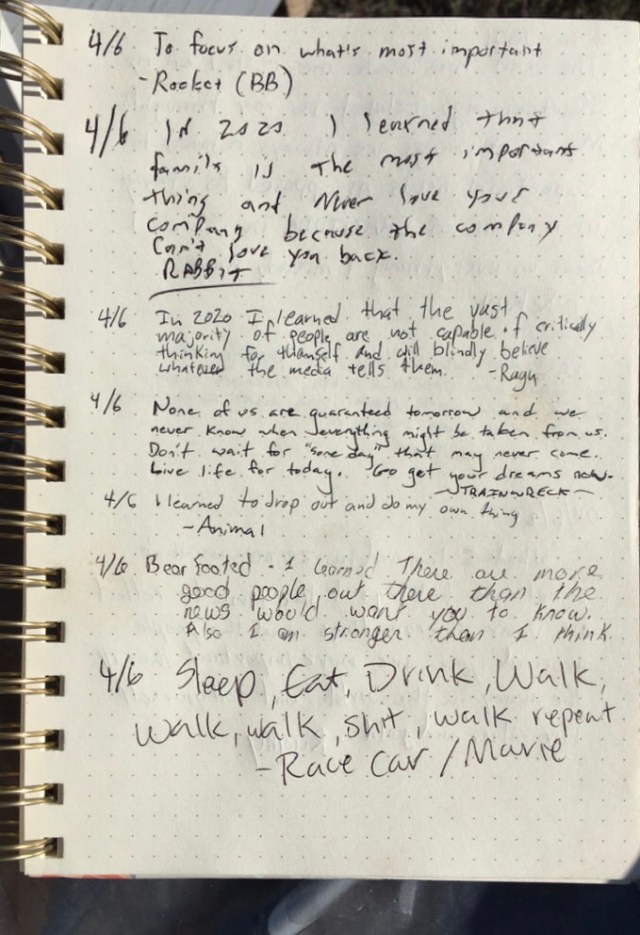 4/6 To focus on what's most important
- Rocket (BB)
4/6 IN 2020 I learned that
family is the most important
thing and Never love your
company because the company
Can't love you back.
RABBIT
4/6 In 2020 I learned that the vast
majority of people are not capable of critically
thinking for themself and will blindly believe
whatever the media tells them. - Ragu
4/6 None of us are guaranteed tomorrow and we
never know when everything might be taken from us.
Don't wait for "some day" that may never come.
Live life for today. Go get your dreams now.
- TRAINWRECK -
4/6 I learned to drop out and do my own thing
- Animal
4/6 Bear footed - I learned There are more
good people out there than the
news would want you to know.
Also I am stronger than I think.
4/6 Sleep, Eat, Drink, Walk,
walk, walk, shit, walk repeat
- Race Car / Marie